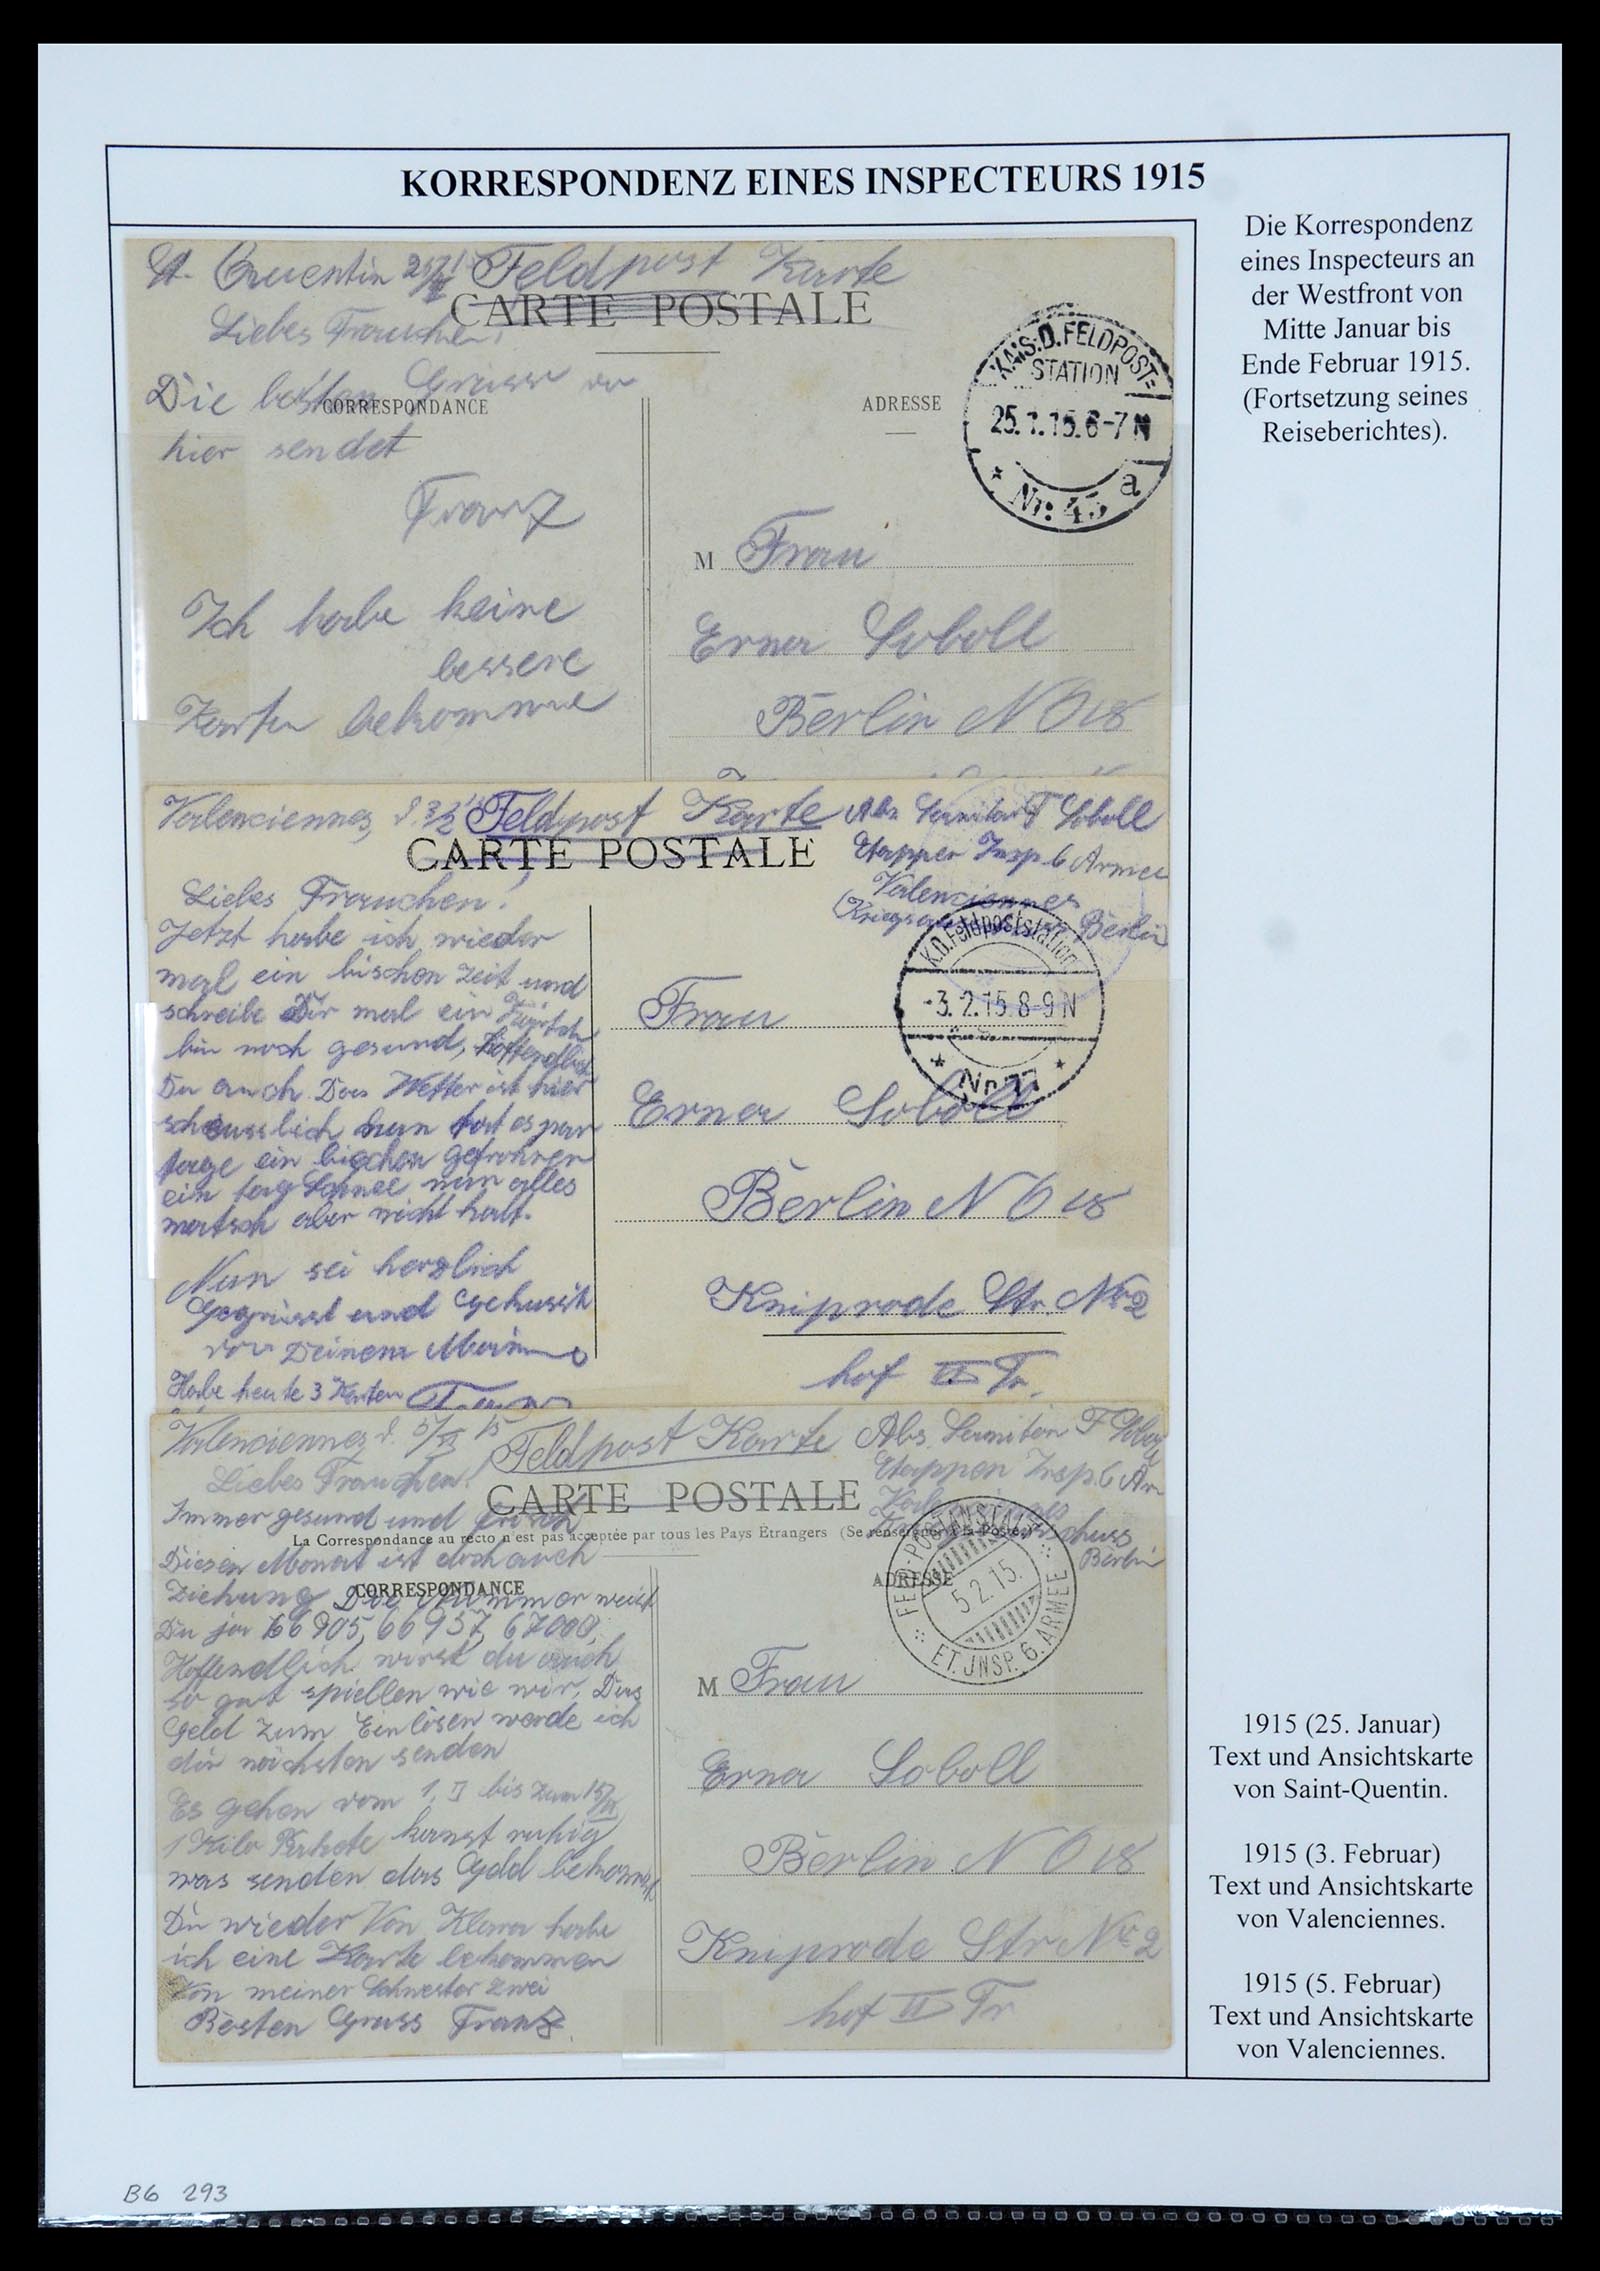 KORRESPONDENZ EINES INSPECTEURS 1915
Die Korrespondenz
eines Inspecteurs an
der Westfront von
Mitte Januar bis
Ende Februar 1915.
(Fortsetzung seines
Reiseberichtes).
St. Quentin Feldpost Karte
CARTE POSTALE
Liebes Frauchen!
Die besten Grüsse von
CORRESPONDANCE
hier sendet
Franz
Ich habe keine
bessere
Karten bekomme
ADRESSE
KAIS. D. FELDPOST=
STATION
25.1.15.6-7 N
a
M Frau
Erna Soboll
Berlin NO 18
Valenciennes, d. 3/2 Feldpost Karte
CARTE POSTALE
Abs. F Soboll
Etappen Insp. 6 Armee
Valenciennes
Berlin
Liebes Frauchen!
Jetzt habe ich wieder
mal ein bischen Zeit und
schreibe Dir mal ein
bin noch gesund, hoffendlich
Du auch. Das Wetter ist hier
scheusslich nun hat es par
tage ein bischen gefrohren
ein tag Schnee nun alles
matsch aber nicht kalt.
Nun sei herzlich
Gegrüsst und Geküsst
von Deinem Mann
Habe heute 3 Karten
K.D. Feldpoststation
-3.2.15.8-9 N
Frau
Erna Soboll
Berlin NO 18
Kniprode Str. No 2
hof II Tr.
Valenciennes d. 5/II 15 Feldpost Karte
CARTE POSTALE
La Correspondance au recto n'est pas acceptée par tous les Pays Etrangers (Se renseigner à la Poste)
Abs. F Soboll
Etappen Insp. 6 Ar
Valenciennes
Berlin
Liebes Frauchen!
Immer gesund und frisch
Diesen Monat ist doch auch
CORRESPONDANCE
Ziehung Die Nummer weist
Du ja 66905, 66937, 67000,
Hoffendlich wirst du auch
so gut spiellen wie wir. Das
Geld zum Einlösen werde ich
dir nächsten senden
Es gehen vom 1. II bis zum 15/II
1 Kilo Pakete kanst ruhig
was senden das Geld bekommst
Du wieder Von Klara habe
ich eine Karte bekommen
Von meiner Schwester zwei
Besten Gruss Franz
ADRESSE
FELD-POSTANSTALT
5.2.15.
ET. JNSP. 6. ARMEE
M Frau
Erna Soboll
Berlin NO 18
Kniprode Str No 2
hof II Tr
1915 (25. Januar)
Text und Ansichtskarte
von Saint-Quentin.
1915 (3. Februar)
Text und Ansichtskarte
von Valenciennes.
1915 (5. Februar)
Text und Ansichtskarte
von Valenciennes.
B6 293